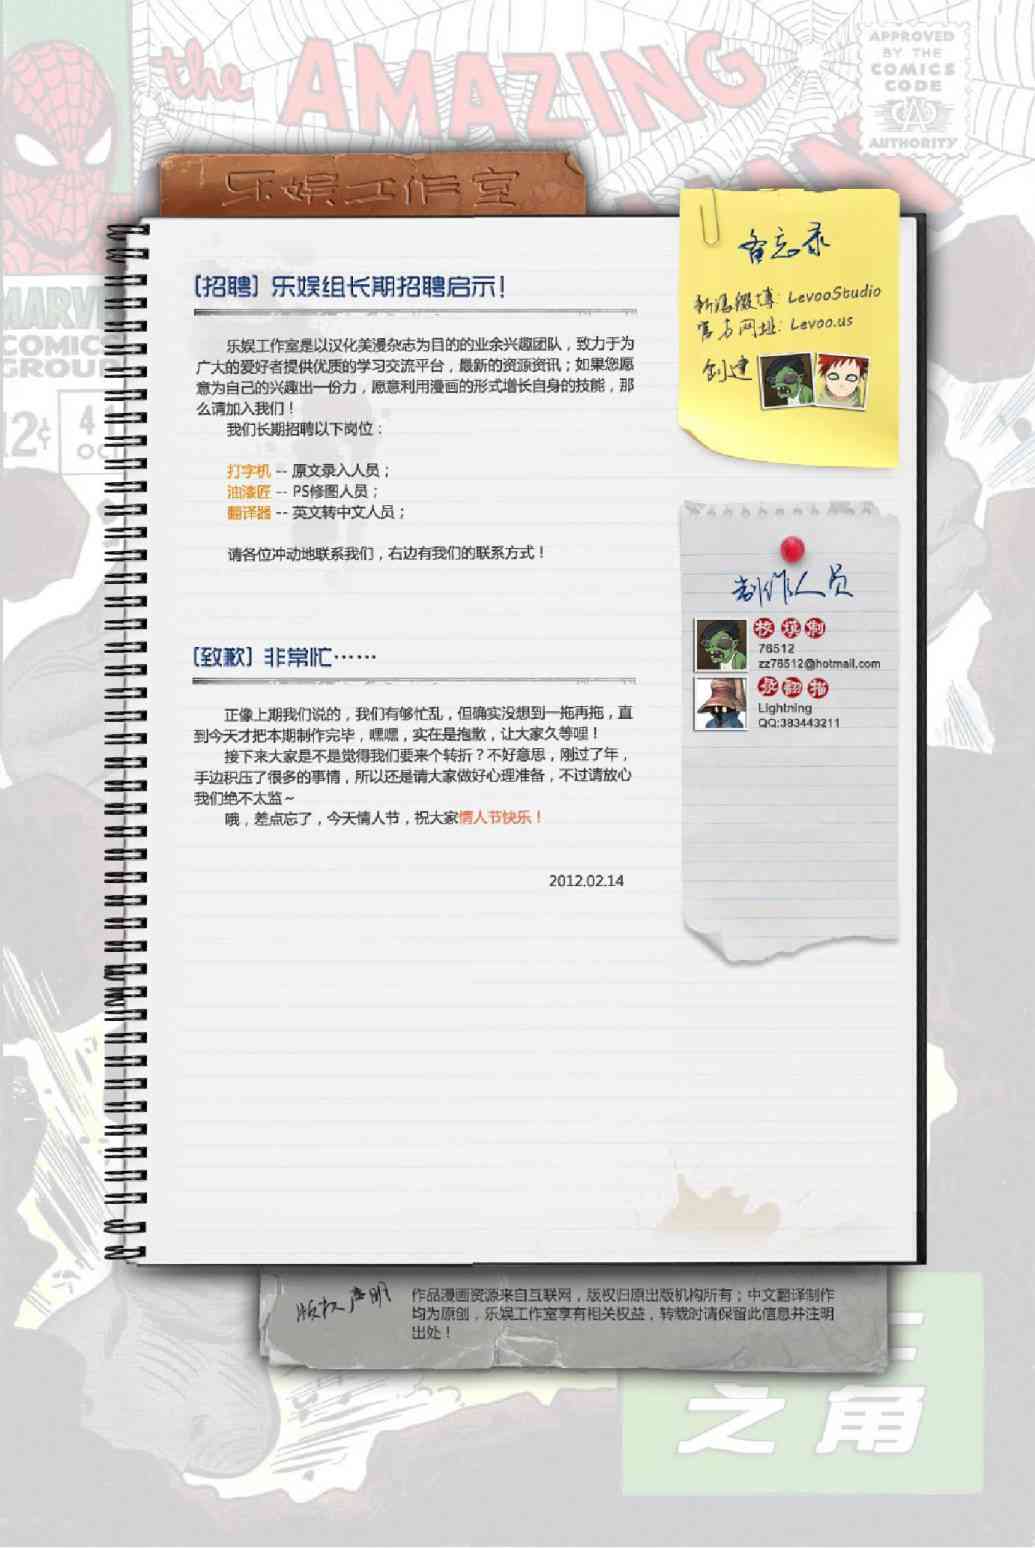 the AMAZING
APPROVED
BY THE
COMICS
CODE
AUTHORITY
MARV
COMICS
GROUP
12¢
乐娱工作室
[招聘] 乐娱组长期招聘启示！
乐娱工作室是以汉化美漫杂志为目的的业余兴趣团队，致力于为
广大的爱好者提供优质的学习交流平台，最新的资源资讯；如果您愿
意为自己的兴趣出一份力，愿意利用漫画的形式增长自身的技能，那
么请加入我们！
我们长期招聘以下岗位：
打字机 -- 原文录入人员；
油漆匠 -- PS修图人员；
翻译器 -- 英文转中文人员；
请各位冲动地联系我们，右边有我们的联系方式！
[致歉] 非常忙……
正像上期我们说的，我们有够忙乱，但确实没想到一拖再拖，直
到今天才把本期制作完毕，嘿嘿，实在是抱歉，让大家久等哩！
接下来大家是不是觉得我们要来个转折？不好意思，刚过了年，
手边积压了很多的事情，所以还是请大家做好心理准备，不过请放心
我们绝不太监~
哦，差点忘了，今天情人节，祝大家情人节快乐！
2012.02.14
备忘录
新浪微博: LevooStudio
官方网址: Levoo.us
创建
制作人员
校 嵌 制
76512
zz76512@hotmail.com
录 翻 描
Lightning
QQ:383443211
版权声明
作品漫画资源来自互联网，版权归原出版机构所有；中文翻译制作
均为原创，乐娱工作室享有相关权益，转载时请保留此信息并注明
出处！
之角